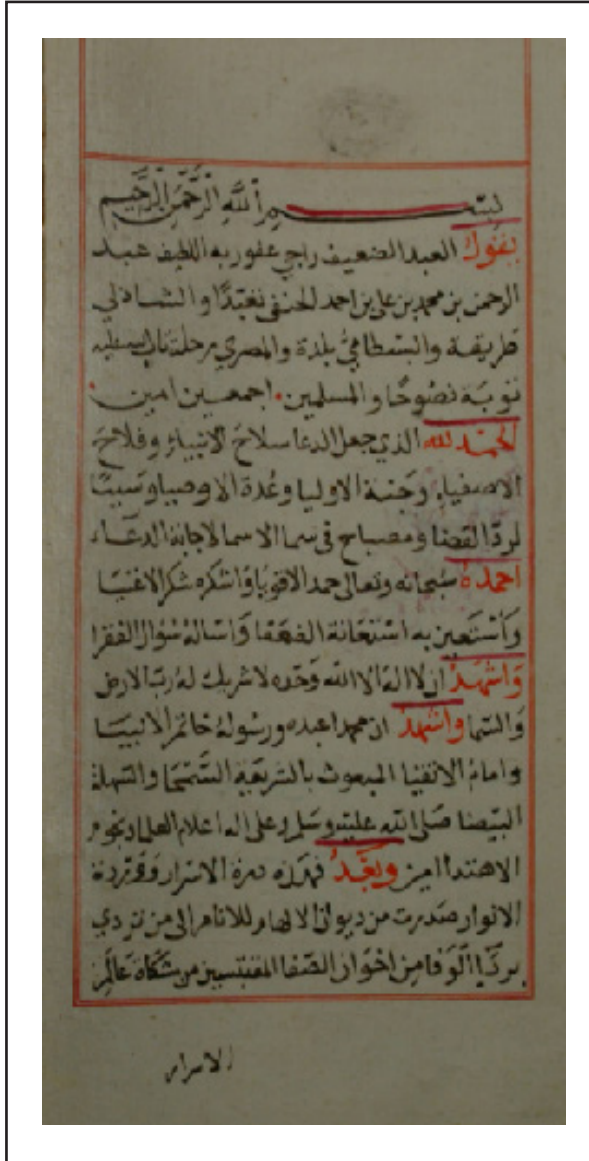 بسم الله الرحمن الرحيم
يقول العبد الضعيف راجي عفو ربه اللطيف عبد
الرحمن بن محمد بن علي بن احمد الحنفي تعبدًا والشاذلي
طريقة والبسطاميُّ بلدة والمصري رحلة تاب الله عليه
توبة نصوحًا والمسلمين اجمعين امين
الحمد لله الذي جعل الدعا سلاحَ الانبياء وفلاحَ
الاصفياء وجنة الاوليا وعُدة الاوصيا وسببًا
لردّ القضا ومصباح في سما الاسما لاجابة الدعاء
احمدهُ سبحانه وتعالى حمد الاقويا واشكره شكر الاغنيا
وأستعين به استعانة الضعفا واسالهُ سُوال الفقرا
واشهدُ ان لا اله الا الله وحده لا شريك لهُ ربّ الارض
والسّما واشهدُ ان محمدا عبده ورسولهُ خاتم الانبيا
وامامُ الاتقيا المبعوث بالشريعة السّمحا والسّهلة
البيضا صلى الله عليه وسلم وعلى اله اعلام العلما ونجوم
الاهتدا امين وبعْدُ فهذه درة الاسرار و
الانوار صدرت من ديوان الالهام للانام الى من تردي
بردَآ الوفا من اخوان الصّفا المقتبسين من مشكاة عالم
الاسرار